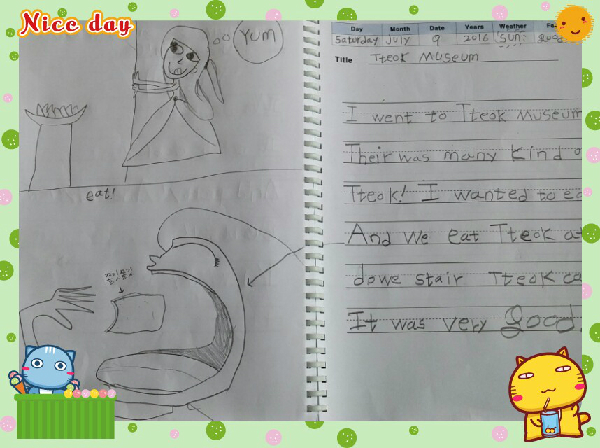 Nice day
Yum
eat!
Day Month Date Years Weather
Saturday July 9 2016 Sun
Title Tteok Museum
I went to Tteok Museum
Their was many kind o
Tteok! I wanted to ea
And we eat Tteok at
dowe stair Tteok ca
It was very good.